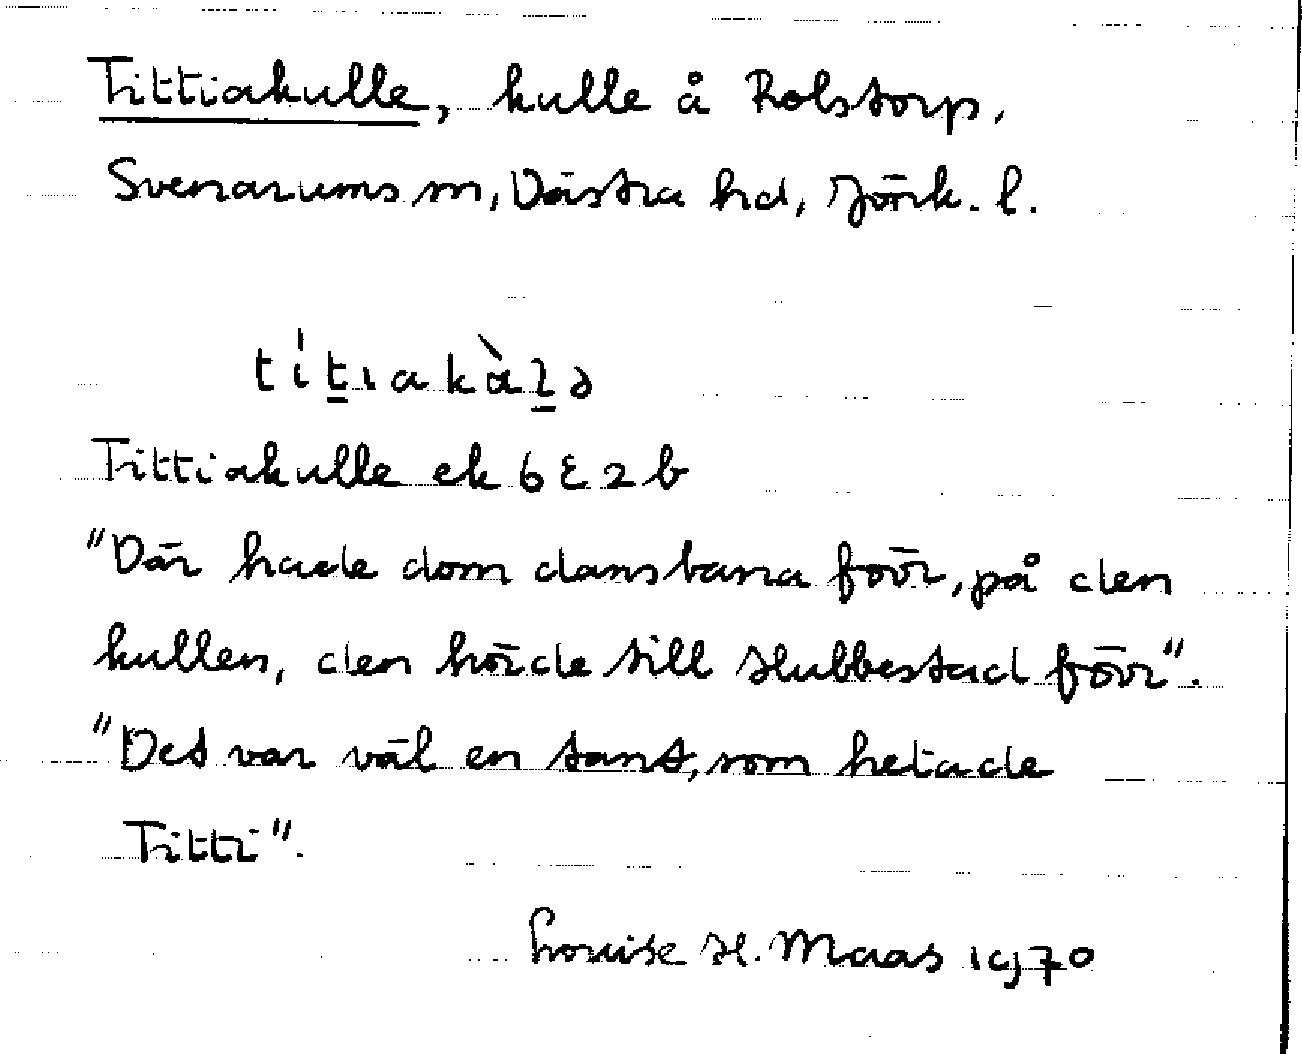 Tittiakulle, kulle å Rolstorp,
Svenarums sn, Västra hd, Jönk. l.
títiakàlə
Tittiakulle ek 6E2b
"Där hade dom dansbana förr, på den
kullen, den hörde till Hubbestad förr".
"Det var väl en tant, som hetade
Titti".
Louise H. Maas 1970